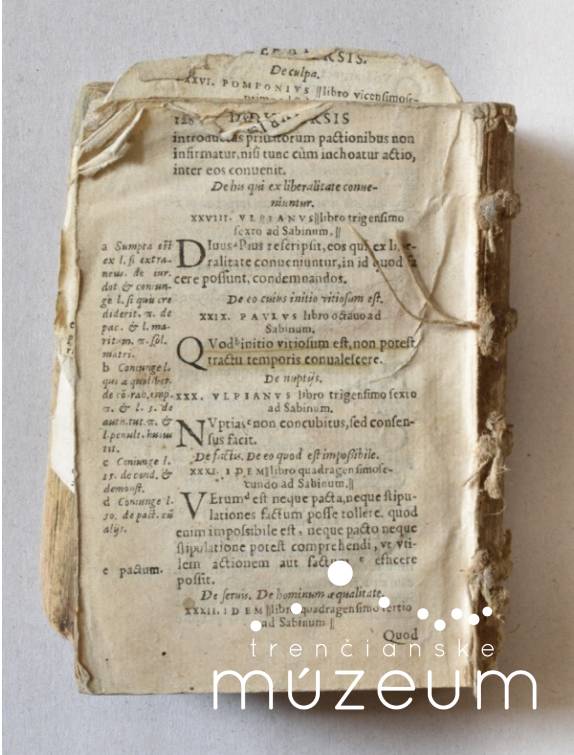 De culpa.
XXVI. POMPONIVS ‖libro vicensimose-
introductas priuatorum pactionibus non
infirmatur, nisi tunc cùm inchoatur actio,
inter eos conuenit.
De his qui ex liberalitate conue-
niuntur.
XXVIII. VLPIANVS‖libro trigensimo
sexto ad Sabinum.‖
DIuusᵃ Pius rescripsit, eos qui ex li
ralitate conueniuntur, in id quod fa
cere possunt, condemnandos.
De eo cuius initio vitiosum est.
XXIX. PAVLVS libro octauo ad
Sabinum.
QVodᵇ initio vitiosum est, non potest
tractu temporis conualescere.
De nuptijs.
XXX. VLPIANVS libro trigensimo sexto
ad Sabinum.
NVptiasᶜ non concubitus, sed consen-
sus facit.
De factis. De eo quod est impossibile.
XXXI. IDEM‖libro quadragensimose-
cundo ad Sabinum.‖
VErumᵈ est neque pacta, neque stipu-
lationes factum posse tollere. quod
enim impossibile est, neque pacto neque
stipulatione potest comprehendi, vt vti-
lem actionem aut factum ᵉ efficere
possit.
De seruis. De hominum æqualitate.
XXXII. IDEM‖libro quadragensimo tertio
ad Sabinum‖
Quod
a Sumpta est
ex l. si extra-
neus. de iur.
dot. & coniun-
ge l. si quis cre
diderit. π. de
pac. & l. ma-
ritum. π. sol.
matri.
b Coniunge l.
quæ
π. & l. 5. de
autu. tut. π. &
l. penult. huius
tit.
c Coniunge l.
15. de cond. &
demonst.
d Coniunge l.
50. de pact. cũ
alijs.
e pactum.
trenčianske
múzeum